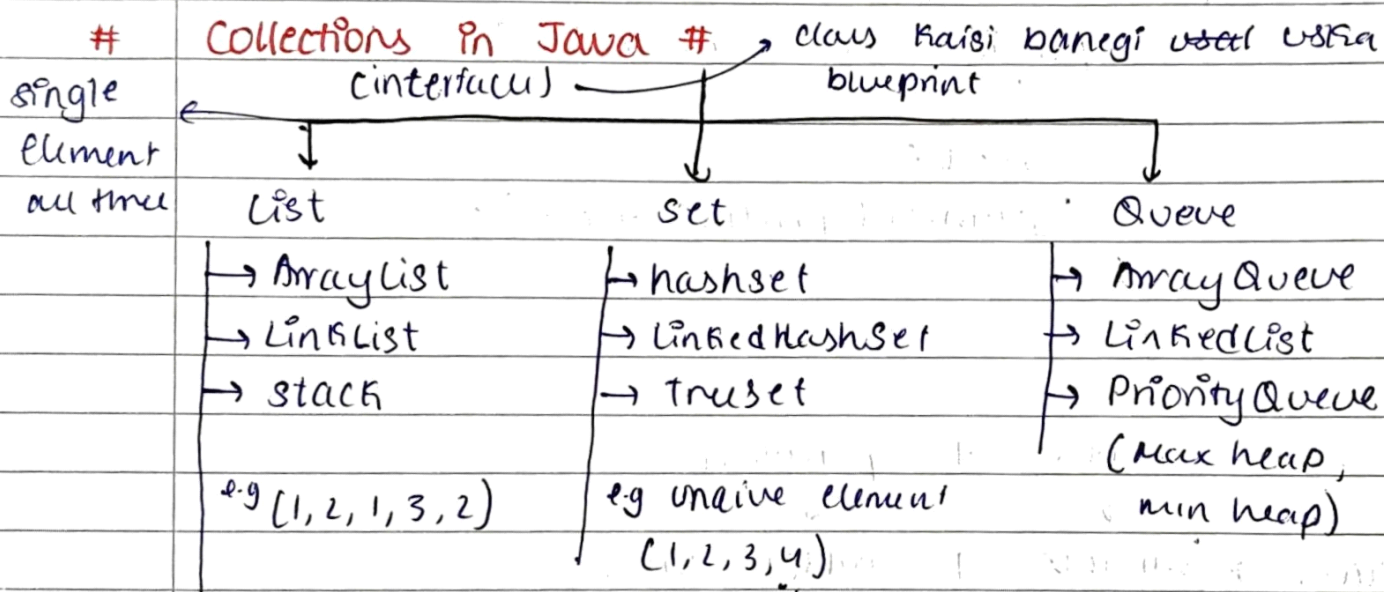 # Collections in Java #
class kaisi banegi used uska
blueprint
(interfaces)
single
element
all three
List
Set
Queue
ArrayList
LinkList
stack
e.g (1, 2, 1, 3, 2)
hashset
LinkedHashSet
treeset
e.g unqiue element
(1, 2, 3, 4)
ArrayQueue
LinkedList
PriorityQueue
(Max heap,
min heap)